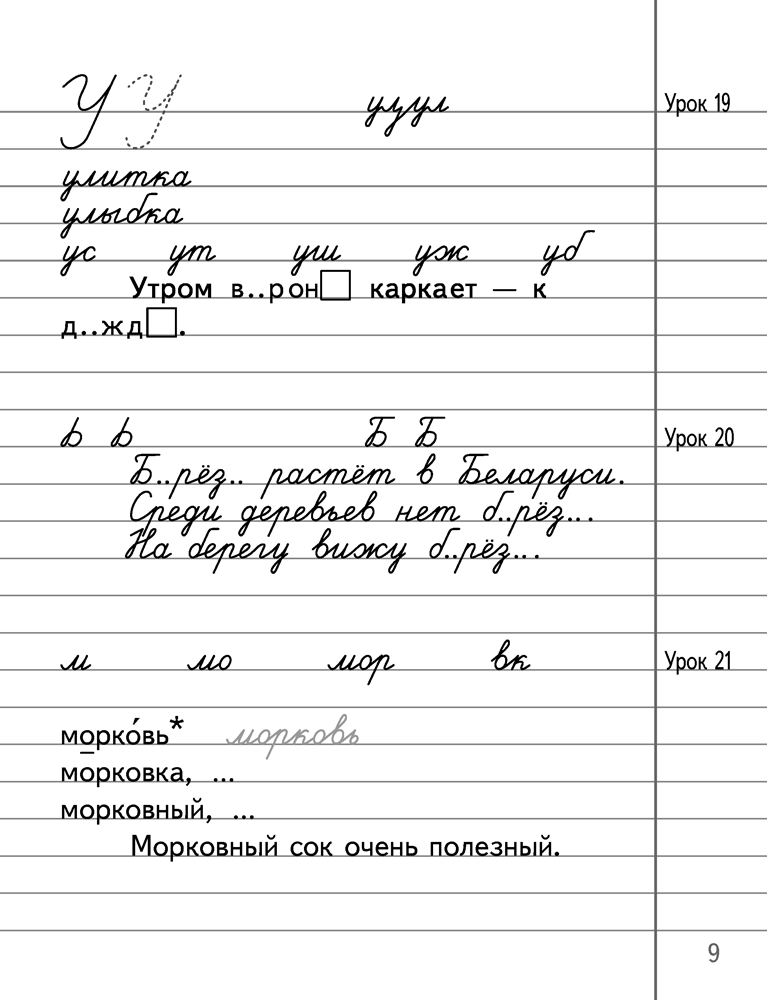 У У узул Урок 19
улитка
улыбка
ус ут уш уж уб
Утром в..рон□ каркает — к
д..жд□.
Ь Ь Б Б Урок 20
Б..рёз.. растёт в Беларуси.
Среди деревьев нет б..рёз...
На берегу вижу б..рёз...
м мо мор вк Урок 21
морко́вь* морковь
морковка, ...
морковный, ...
Морковный сок очень полезный.
9